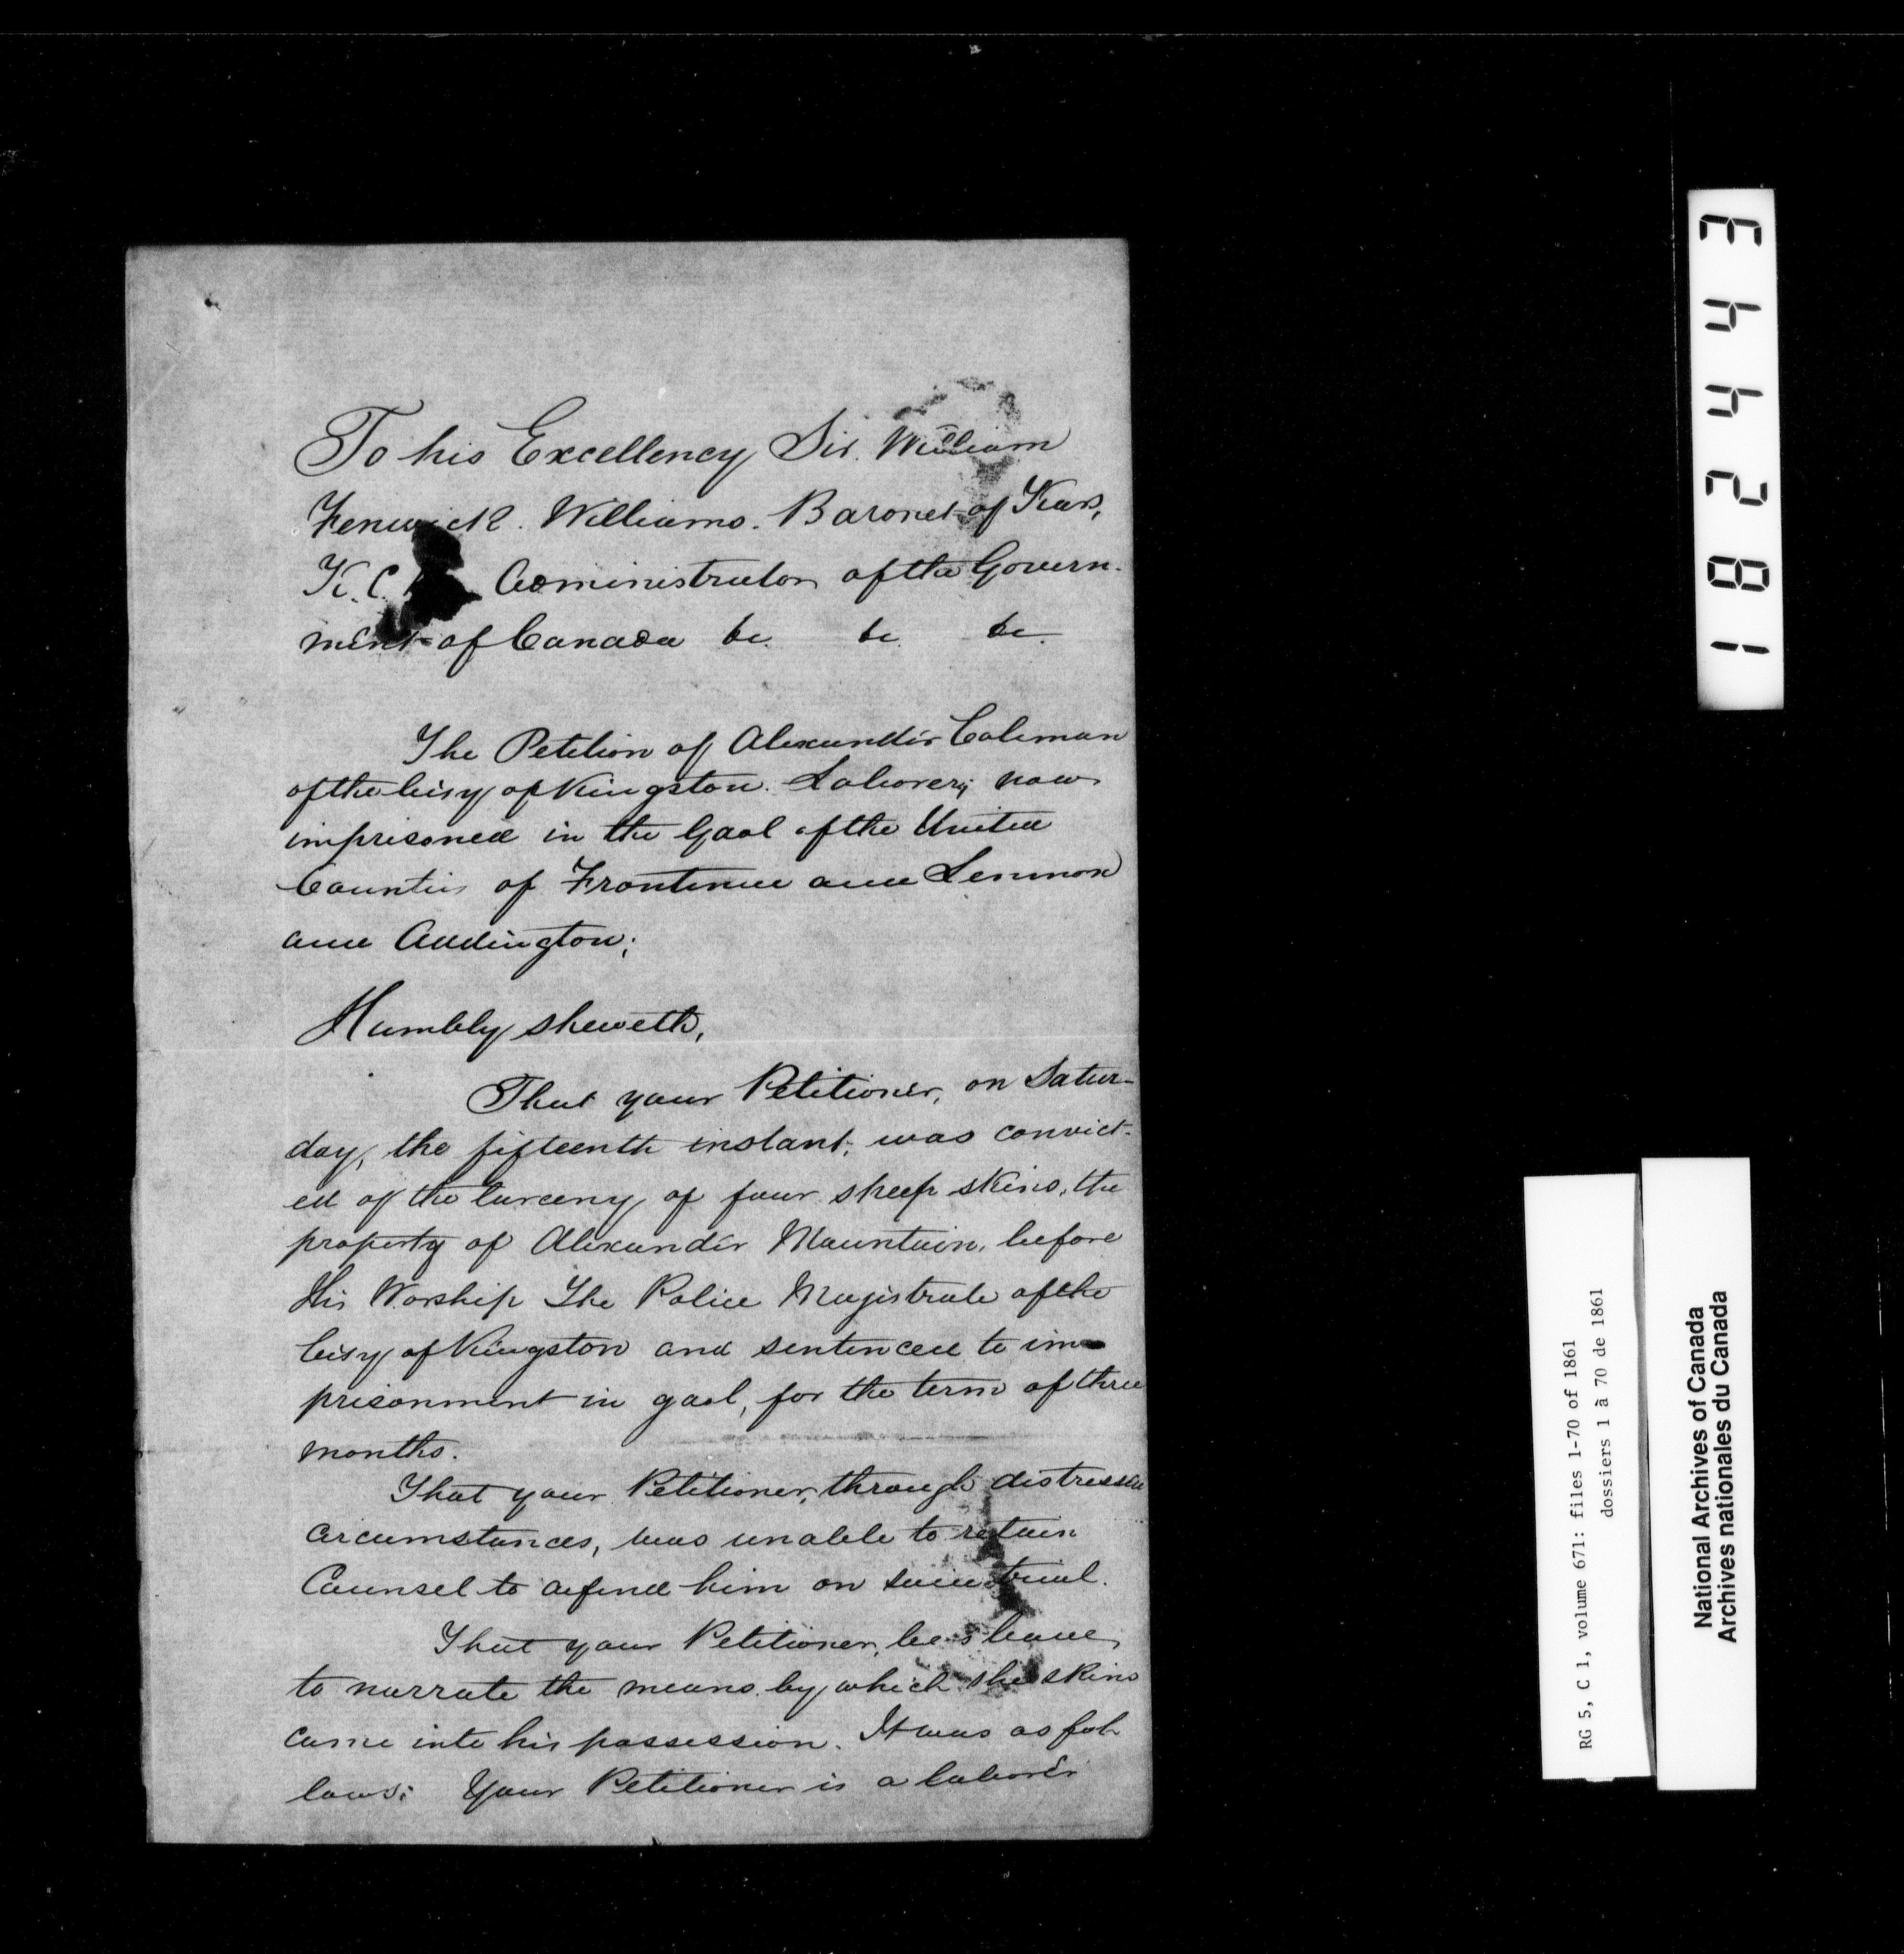 To his Excellency Sir William
Fenwick Williams. Baronet of Kars,
K.C. Administrator of the Govern-
ment of Canada &c. &c. &c.
The Petition of Alexander Coleman
of the City of Kingston. Laborer; now
imprisoned in the Gaol of the United
Counties of Frontenac and Lennox
and Addington;
Humbly sheweth,
That your Petitioner, on Satur-
day, the fifteenth instant, was convict-
ed of the larceny of four sheep skins, the
property of Alexander Mountain, before
His Worship The Police Magistrate of the
City of Kingston and sentenced to im-
prisonment in gaol, for the term of three
months.
That your Petitioner, through distressed
circumstances, was unable to retain
Counsel to defend him on said trial.
That your Petitioner, begs leave,
to narrate the means by which the skins
came into his possession. It was as fol-
lows: Your Petitioner is a laborer
34428 1
RG 5, C 1, volume 671: files 1-70 of 1861
dossiers 1 à 70 de 1861
National Archives of Canada
Archives nationales du Canada